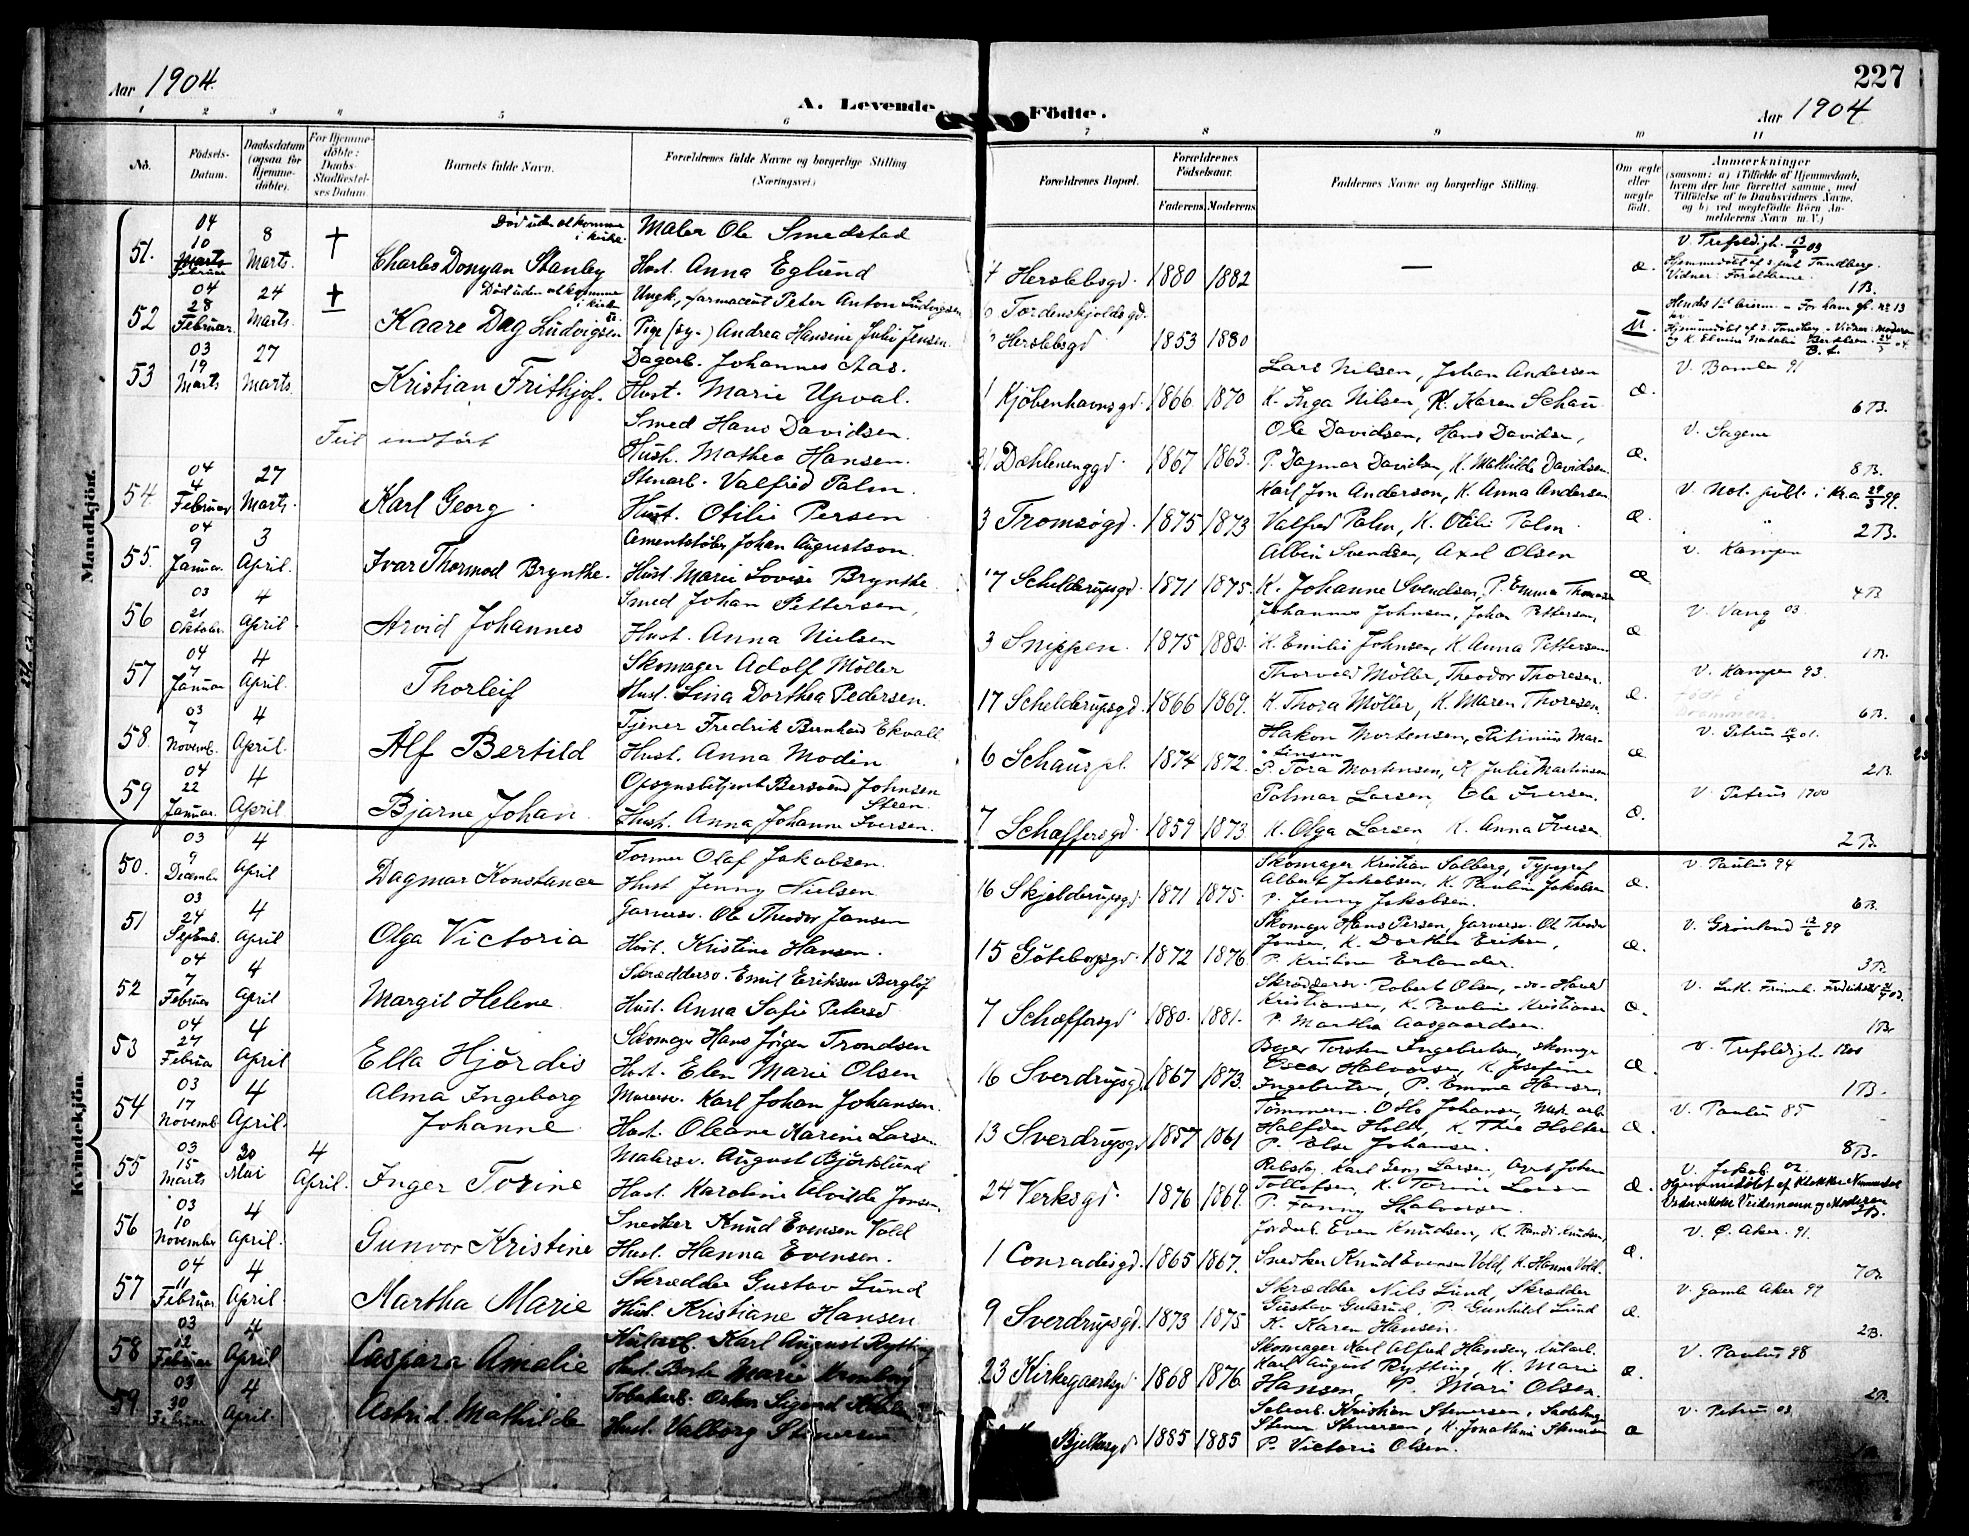 Aar 1904.
A. Levende Födte.
227
Aar 1904
1 2 3 4 5 6 7 8 9 10 11
No.
Födsels-Datum.
Daabsdatum (ogsaa for Hjemme-döbte).
For Hjemme-döbte: Daabs-Stadfæstel-ses Datum.
Barnets fulde Navn.
Forældrenes fulde Navne og borgerlige Stilling (Næringsvei.)
Forældrenes Bopæl.
Forældrenes Fødselsaar.
Faderens. Moderens.
Faddernes Navne og borgerlige Stilling.
Om ægte eller uægte födt.
Anmærkninger
(saasom: a) i Tilfælde af Hjemmedaab, hvem der har forrettet samme, med Tilföielse af to Daabsvidners Navne, og b) ved uægtefödte Börn An-melderens Navn m. V.)
Mandkjön.
51. 04 10 Februar 8 Marts. † Död uden at komme i kirke. Charles Donyan Stanley
Maler Ole Smedstad
Hust. Anna Eglund
Herslebsgd. 1880 1882 — æ.
V. Trefoldigh. 13/9 03
Hjemmedöbt af s. pr. Tandberg. Vidner: Forældrene. 1B.
52 04 28 Februar 24 Marts. † Död uden at komme i kirke Kaare Dag Ludvigsen
Ungk., farmaceut Peter Anton Ludvigsen
Pige (sy-) Andrea Hansine Julie Jensen.
Tordenskjoldsgd.
Herslebsgd 1853 1880 U.
53 03 19 Marts 27 Marts. Kristian Frithjof.
Dagarb. Johannes Aas.
Hust. Marie Upval.
1 Kjöbenhavnsgd. 1866 1870
Lars Nilsen, Johan Andersen
K. Inga Nilsen, K. Karen Schau æ.
V. Bamle 91
6B.
Feil indfört
Smed Hans Davidsen.
Hust. Mathea Hansen.
Dæhlenenggd. 1867 1863.
Ole Davidsen, Hans Davidsen,
P. Dagmar Davidsen, K. Mathilde Davidsen. æ.
V. Sagene
8B.
54 04 4 Februar 27 Marts. Karl Georg
Stenarb. Valfred Palm.
Hust. Otilie Persen
3 Tromsøgd. 1875 1873
Karl Jon Anderson, K. Anna Andersen
Valfred Palm, K. Otilie Palm. æ.
V. Not. publ. i Kr.a 29/3 99.
2B.
55. 04 9 Januar. 3 April. Ivar Thormod Brynthe.
Cementstöber Johan Augustson.
Hust. Marie Lovise Brynthe
17 Schelderupsgd. 1871 1875.
Albin Svendsen, Axel Olsen
K. Johanne Svendsen, P. Emma Thomsen æ
V. Kampen
4B
56 03 21 Oktober. 4 April. Arvid Johannes
Smed Johan Pettersen,
Hust. Anna Nielsen
3 Snippen. 1875 1880.
Johannes Johnsen, Johan Pettersen,
K. Emilie Johnsen, K. Anna Pettersen æ
V. Vang 03
1B.
57 04 7 Januar 4 April. Thorleif
Skomager Adolf Möller
Hust. Lina Dorthea Pedersen.
17 Schelderupsgd. 1866 1869.
Thorvald Möller, Theodor Thoresen.
K. Thora Möller, K. Maren Thoresen. æ.
V. Kampen 93.
födt i Drammen
6B.
58. 03 7 Novemb. 4 April. Alf Bertild
Tjener Fredrik Bernhard Ekvall
Hust. Anna Modin
6 Schaus pl. 1874 1872.
Hakon Mortensen, Petinius Mar-
tinsen
P. Tora Mortensen, K. Julie Martinsen æ
V. Petrus 01.
2B.
59 04 22 Januar. 4 April Bjarne Johan.
Opsynsbetjent Bersvend Johnsen
Steen.
Hust. Anna Johanne Iversen.
7 Schæffersgd. 1859 1873
Palmar Larsen, Ole Iversen.
K. Olga Larsen, K. Anna Iversen æ.
V. Petrus 1900
2B.
Kvindekjön.
50. 03 9 December 4 April Dagmar Konstance
Former Olaf Jakobsen.
Hust Jenny Nielsen
16 Skjelderupsgd. 1871 1875.
Skomager Kristian Solberg, Typograf
Albert Jakobsen, K. Pauline Jakobsen
P. Jenny Jakobsen. æ.
V. Paulus 94
6B.
51 03 24 Septemb. 4 April Olga Victoria
Garversv. Ole Theodor Jansen
Hust. Kristine Hansen.
15 Göteborgsgd. 1872 1876
Skomager Hans Persen, Garversv. Ole Theodor
Jansen, K. Dorthea Eriksen,
P. Kristine Erlander. æ.
V. Grönland 12/6 99
3B.
52 04 7 Februar 4 April Margit Helene
Skræddersv. Emil Eriksen Berglöf
Hust. Anna Sofie Petersd
7 Schæffersgd 1880. 1881.
Skræddersv. Robert Olsen, -do- Harald
Kristiansen, K. Pauline Kristiansen
P. Martha Aasgaardsen. æ.
1B.
53 04 27 Februar 4 April Ella Hjördis
Skomager Hans Jörgen Trondsen
Hust. Elen Marie Olsen
16 Sverdrupsgd. 1867 1873.
Bager Torsten Ingebretsen, skomager
Oscar Halvorsen, K. Josefine
Ingebretsen, P. Emma Hansen. æ.
V. Trefoldigh. 1900
1B.
54 03 17 Novemb. 4 April. Alma Ingeborg Johanne
Murersv. Karl Johan Johansen.
Hust. Oleane Karine Larsen
13 Sverdrupsgd. 1857 1861
Tömmerm. Otto Johansen, Mek. arb.
Halfdan Holter, K. Thea Holter
P. Else Johansen. æ.
V. Paulus 85
8B.
55 03 15 Marts 20 Mai 4 April. Inger Torine
Malersv. August Björklund
Hust. Karoline Alvilde Jonsen
24 Verksgd. 1876 1869.
Rebsl. Karl Jens Larsen, Arb Johan
Tollefsen, K. Torine Larsen
P. Fanny Halvorsen. æ.
V. Jakob 02.
56 03 10 November 4 April. Gunvor Kristine
Snedker Knud Evensen Vold
Hust. Hanna Evensen.
1 Conradisgd. 1865 1867.
Jordarb. Even Knudsen, K. Randi Knudsen,
Snedker Knud Evensen Vold, K. Hanna Vold. æ.
V. Ø. Aker. 91.
7B.
57 04 11 Februar. 4 April. Martha Marie
Skrædder Gustav Lund
Hust. Kristiane Hansen
9 Sverdrupsgd. 1873 1875
Skrædder Nils Lund, Skrædder
Gustav Gulsrud, P. Gunhild Lund
K. Karen Hansen. æ
V. Gamle Aker 99
2B.
58 03 12 Februar 4 April Caspara Amalie
Karl August Rytting
Hust. Berte Marie Kronborg
23 Kirkegaardsgd. 1868 1876.
Skomager Karl Alfred Hansen,
Karl August Rytting, K. Marie
Hansen, P. Mari Olsen. æ
V. Paulus 98
2B.
59 03 30 Februar 4 April. Astrid Mathilde
Hust. Valborg Stenersen
Bjelkesgd 1885 1885
Kristian Stenersen,
Stener Stenersen, K. Jonathine Stenersen
P. Victoria Olsen. æ
V. Petrus 03.